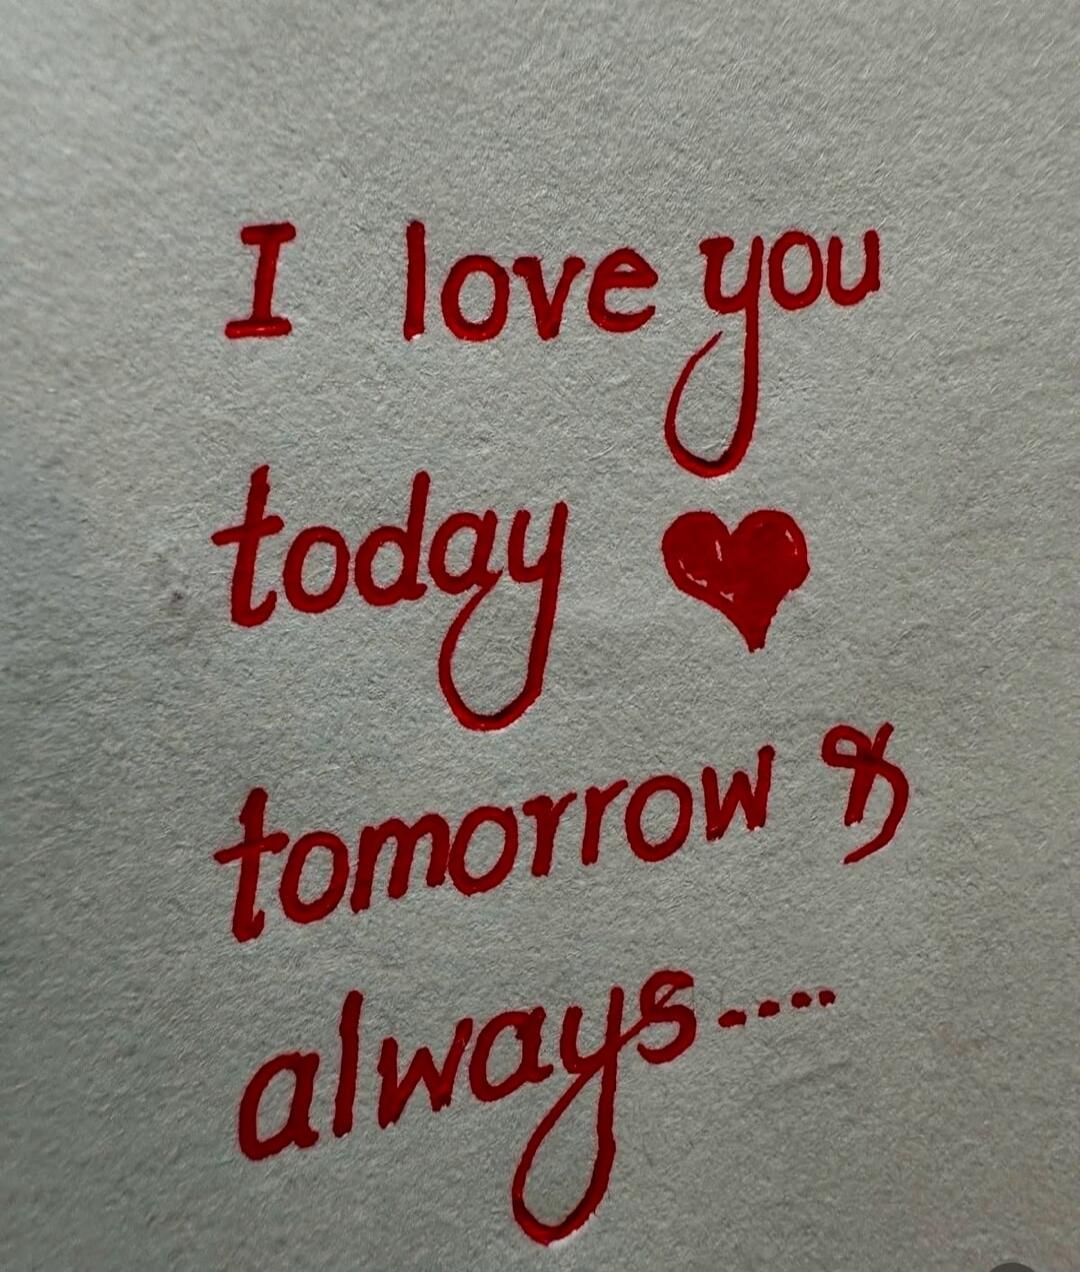 I love you
today ❤
tomorrow &
always....